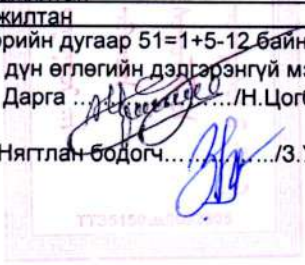 жилтан
рийн дугаар 51=1+5-12 байн
дүн өглөгийн дэлгэрэнгүй мэ
Дарга ............/Н.Цогт
Нягтлан бодогч............/З.У